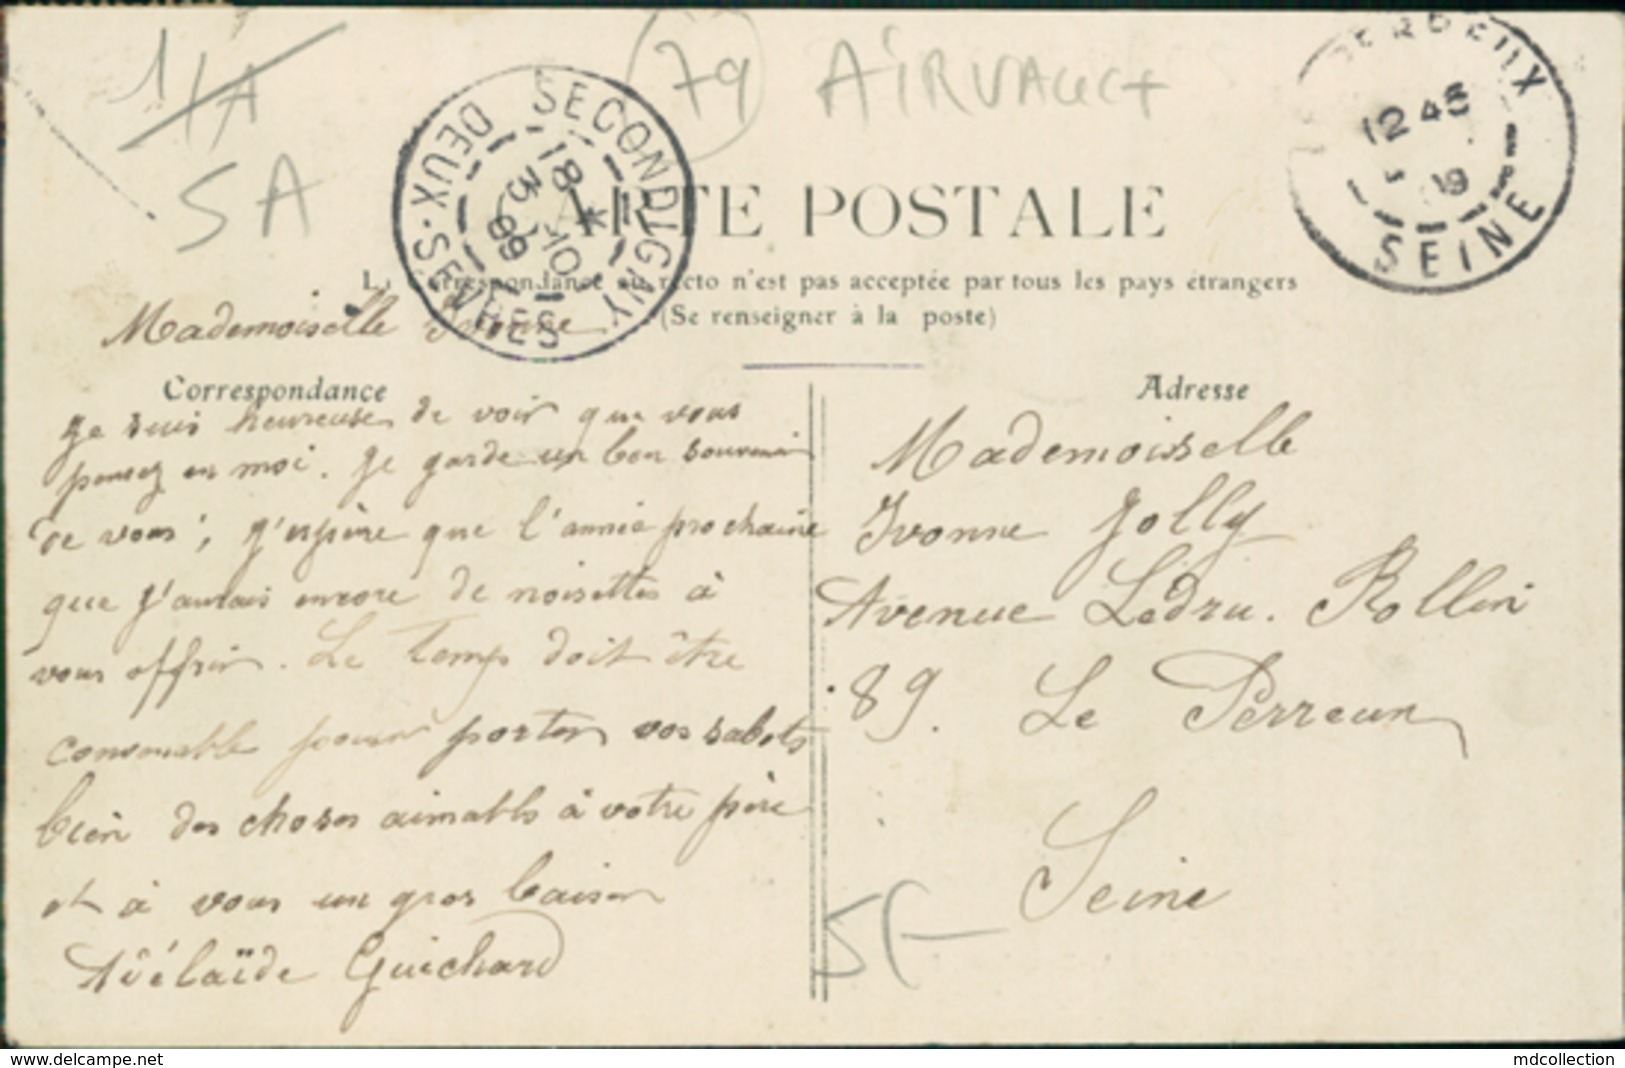 1/A
5A
79
AiRVAULT
SECONDIGNY
DEUX-SEVRES
18 * 10
3
09
12 45
SEINE
CARTE POSTALE
La Correspondance au recto n'est pas acceptée par tous les pays étrangers
(Se renseigner à la poste)
Mademoiselle Yvonne
Correspondance
Je suis heureuse de voir que vous
pensez en moi. Je garde un bon souvenir
de vous, j'espère que l'année prochaine
que j'aurais encore de noisettes à
vous offrir. Le Temp doit être
convenable pour porter vos sabots
bien des choses aimable à votre père
et à vous un gros baiser
Adélaïde Guichard
Adresse
Mademoiselle
Yvonne Jolly
Avenue Ledru. Rollin
89. Le Perreux
Seine
www.delcampe.net
mdcollection